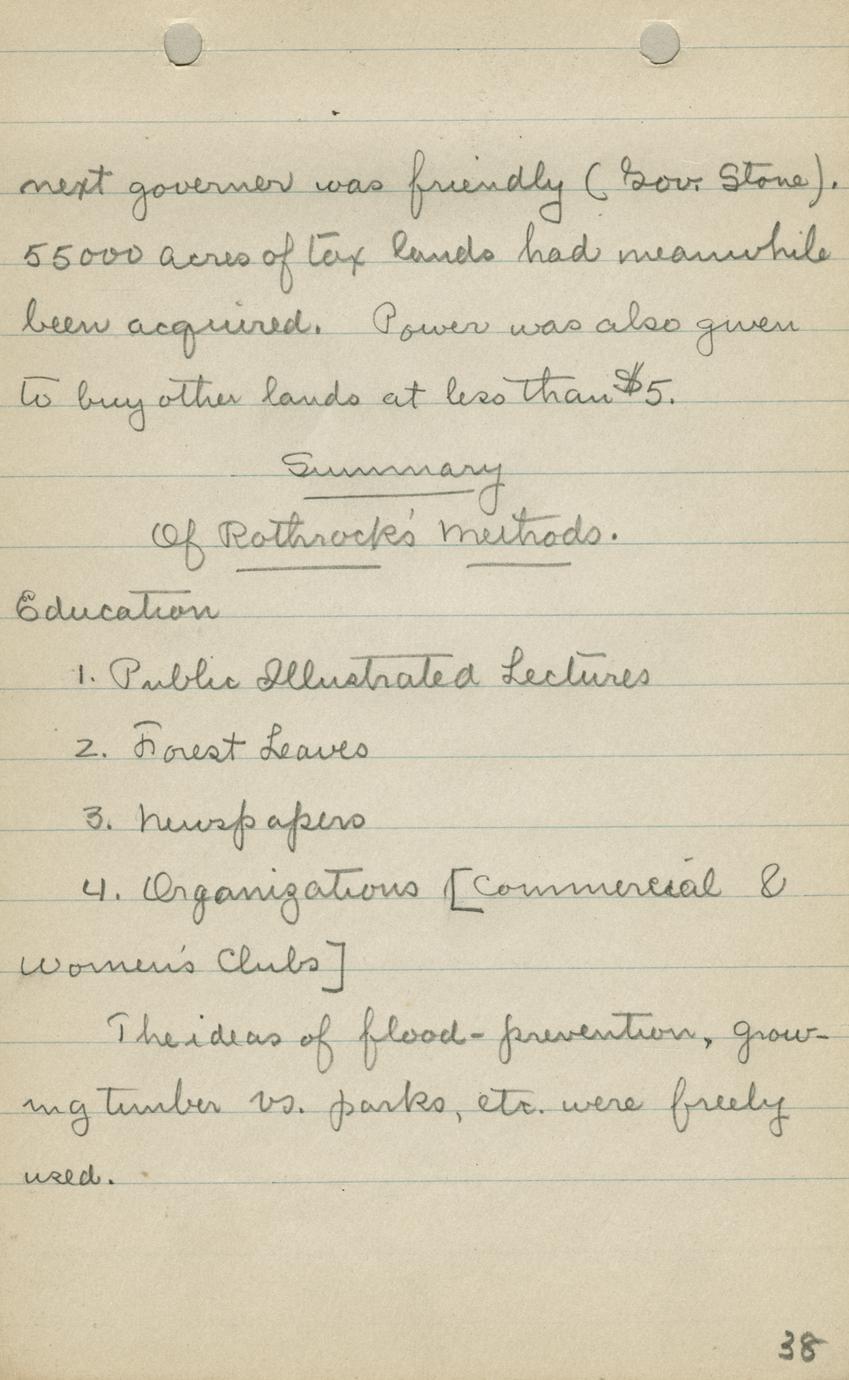 next governer was friendly (Gov. Stone).
55000 acres of tax lands had meanwhile
been acquired. Power was also given
to buy other lands at less than $5.
Summary
Of Rothrock's Methods.
Education
1. Public Illustrated Lectures
2. Forest Leaves
3. Newspapers
4. Organizations [Commercial &
Women's Clubs]
The ideas of flood-prevention, grow-
ing timber vs. parks, etc. were freely
used.
38